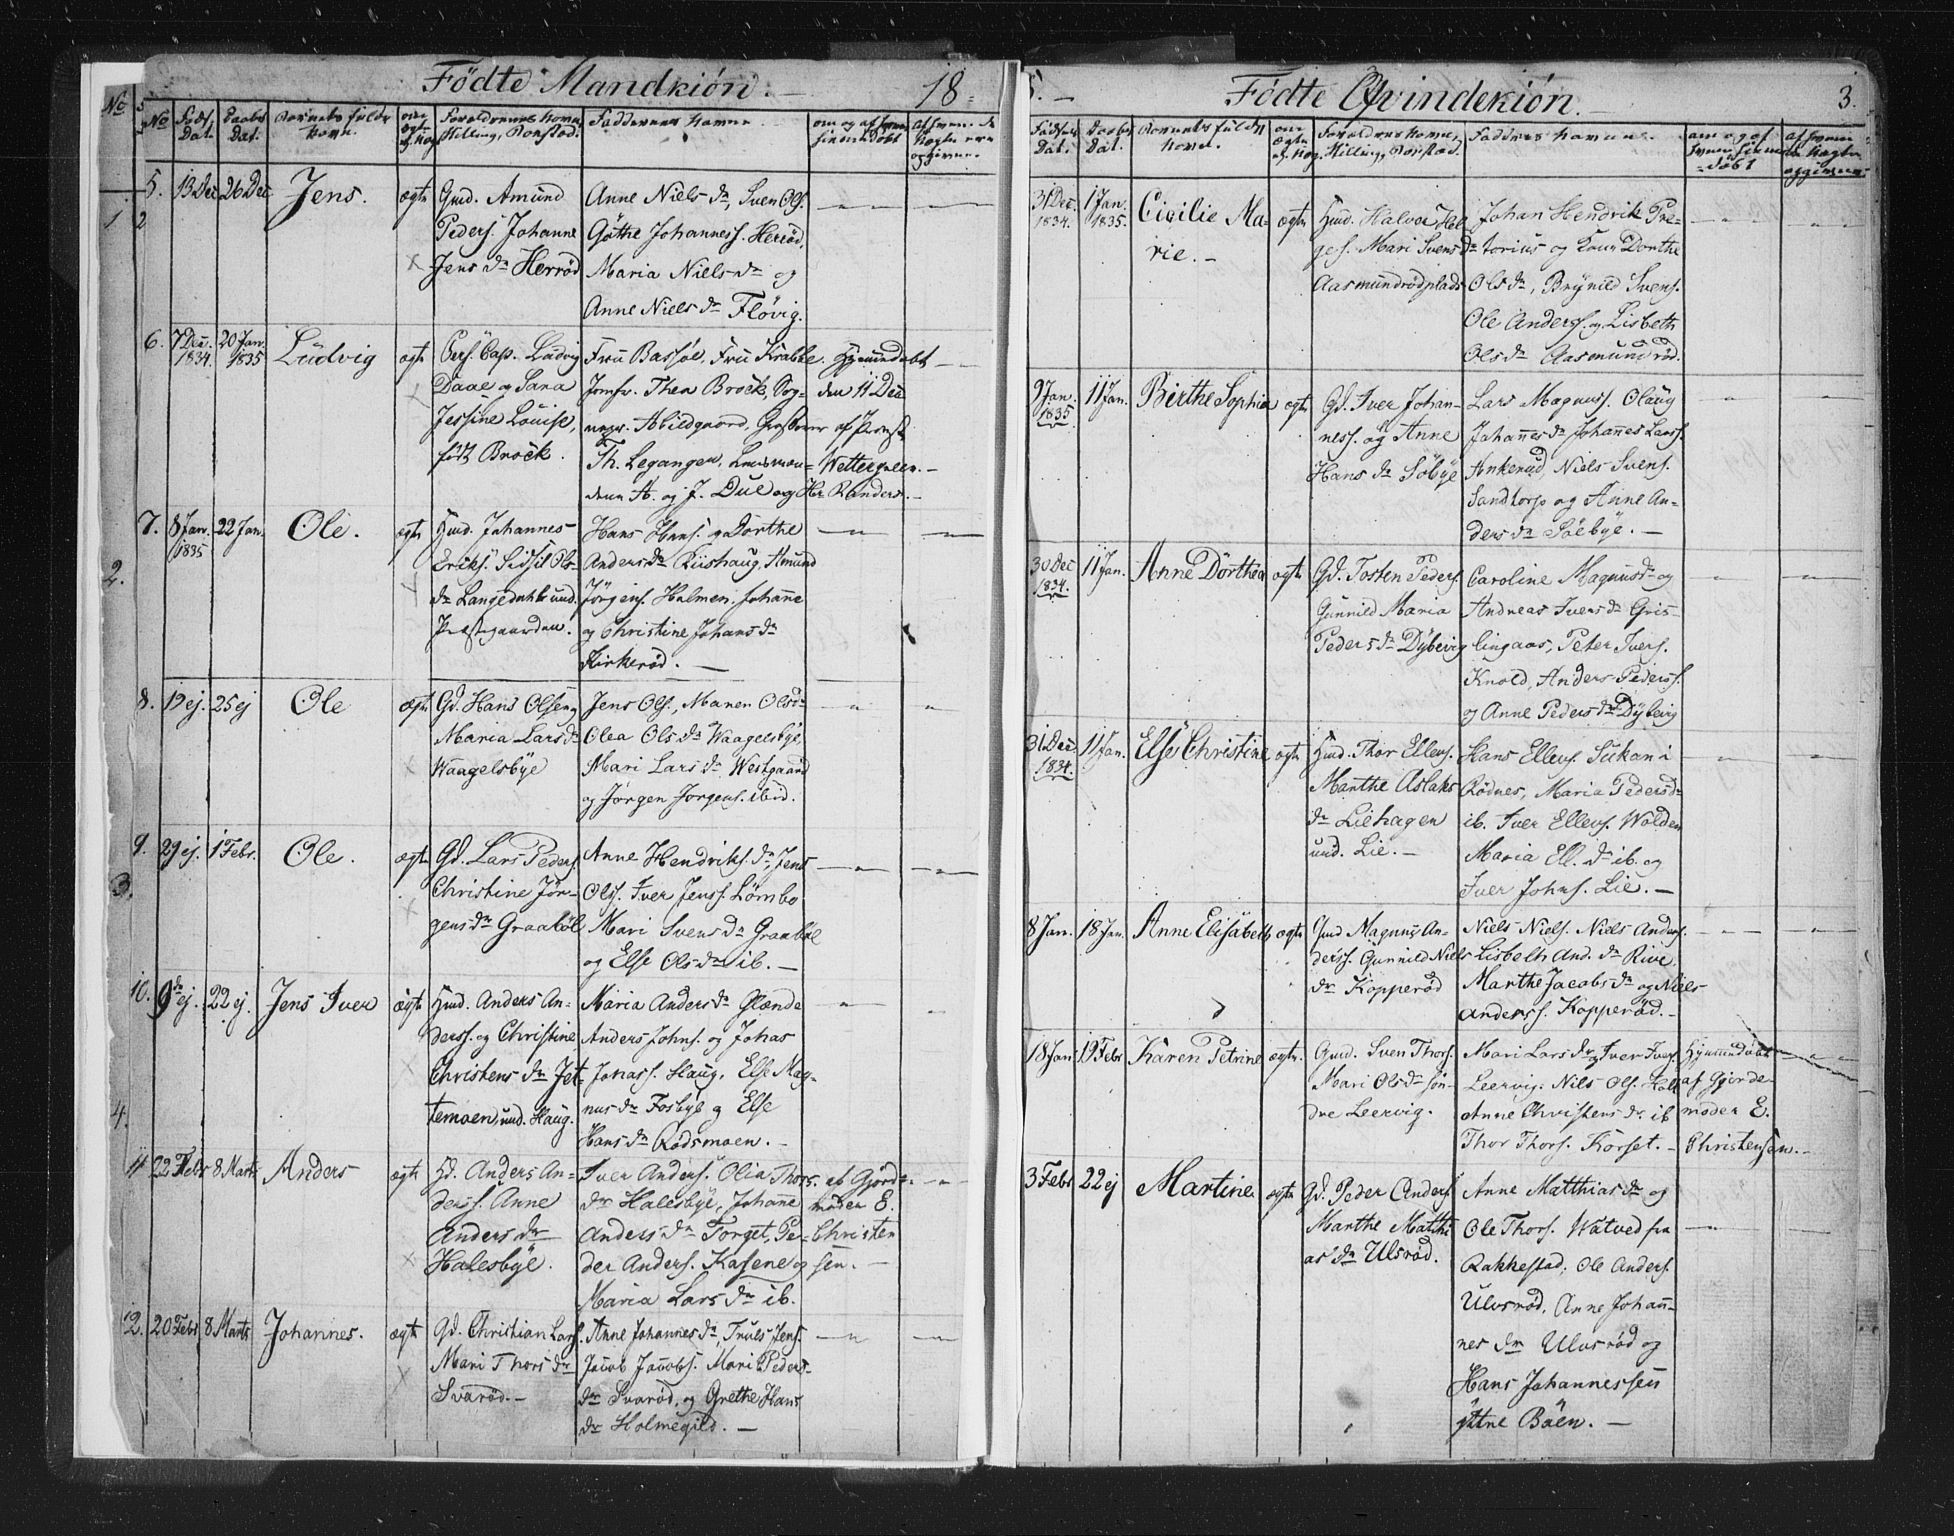 Födte Mandkiön. — 18
No Födt. Dat. Daabs Dat. Barnets fulde Navn.
5. 13 Dec 26 Dec Jens. ægte Gmd. Amund
Peders. Johanne
Jens Dr Herröd
Anne Niels Dr, Sven Ols.
Göthe Johanness. Herröd,
Maria Niels Dr og
Anne Niels Dr Flövig.
6. 7 Dec. 1834. 20 Jan. 1835 Ludvig ægte Cap. Ludvig
Daae og Sara
Jessine Louise,
födt Brock.
Fru Bassöe, Fru Krabbe,
Jomfr. Thea Brock, Sog-
nepr. Abildgaard,
Th. Legangen, Lensman-
dene A. og J. Due og Hr Randers. —
Hjemmedöbt
den 11 Dec
af Præst
Wettergreen. —
7. 8 Jan. 1835 22 Jan. Ole. ægte Hmd. Johannes
Eriks. Sidsil Ols-
Dr Langedahl und.
Præstegaarden.
Hans Hans. og Dorthe
Anders Dr Riishaug, Amund
Jörgens. Holmen, Johanne
og Christine Johans Dr
Kirkeröd. —
8. 19 ej. 25 ej Ole ægte Gd. Hans Olsen og
Maria Lars Dr
Waagelsbye
Jens Ols., Maren Ols Dr
Olea Ols Dr Waagelsbye,
Mari Lars Dr Westgaard
og Jörgen Jörgens. ibid.
9. 29 ej. 1 Febr. Ole. ægte Gd. Lars Peders.
Christine Jör-
gens Dr Graaböl
Anne Hendriks. Dr, Jens
Olss. Iver Jenss. Lömbo
Mari Svens Dr Graaböl
og Else Ols Dr ib. —
10. 9de ej. 22 ej. Jens Iver ægte Hmd. Anders An-
derss. og Christine
Christens Dr Jet-
temoen, und. Haug.
Maria Anders Dr Glænde
Anders Johns. og Johas
Jonass. Haug, Else Mag-
nus Dr Fosbye og Else
Hans Dr Rödsmoen. —
11 22 Febr 8 Marts Anders ægte Gd. Anders An-
derss. Anne
Anders Dr
Halesbye.
Iver Anders. Olia Thors.
Dr Halesbye, Johanne
Anders Dr Torget, Pe-
der Anders. Kasene og
Maria Lars Dr ib.
af Gjord-
moder E.
Christen
sen. —
12. 20 Febr 8 Marts Johannes. ægte Gd. Christian Lars.
Mari Thors Dr
Svaröd. —
Anne Johannes Dr, Truls Jens.
Jacob Jacobs. Mari Peders-
Dr Svaröd, og Grethe Hans
Dr Holmegild. —
5. — Födte Qvindekiön. 3.
31 Dec. 1834. 1 Jan. 1835. Cicilie Ma-
rie. —
ægte Hmd. Halvor Hel
ges. Mari Svens Dr
Aasmundrödplads
Johan Hendrik Præ-
torius og Kone Dorthe
Ols Dr, Brynild Svens.
Ole Anders. og Lisbeth
Ols Dr Aasmundröd.
9 Jan. 1835 11 Jan. Birthe Sophia ægte Gd. Iver Johan-
ness. og Anne
Hans Dr Söbye
Lars Magnus. Olaug
Johannes Dr Johannes Larss.
Ankerud, Niels Svens.
Sandtorp og Anne An-
ders Dr Söebye. —
30 Dec 1834. 11 Jan. Anne Dorthea ægte Gd. Tosten Peders.
Gunnild Maria
Peders Dr Dybevig
Caroline Magnus Dr og
Andreas Ivers Dr Gris-
lingaas, Peter Ivers.
Knold, Anders Peders.
og Anne Peders Dr Dybevig
31 Dec. 1834. 11 Jan. Else Christine ægte Hmd. Thor Ellevs.
Marthe Aslaks
Dr Liehagen
und. Lie. —
Hans Ellevs. Sukan i
Rödnes, Maria Peders Dr
ib. Iver Ellevs. Wolden
Maria Ell. Dr ib. og
Iver Johns. Lie. —
8 Jan. 18 Jan. Anne Elisabeth ægte Gmd Magnus An-
derss. Gunnild Niels
Dr Kopperöd
Niels Niels. Niels Anders.
Lisbeth And. Dr Rive.
Marthe Jacobs Dr og Niels
Anderss. Kopperöd. —
18 Jan. 19 Febr Karen Petrine ægte. Gmd. Sven Thors.
Mari Ols Dr sön-
dre Leervig.
Mari Lars Dr og Iver Ivers.
Leervig. Niels Ols.
Anne Christens Dr. ib
Thor Thors. Korset. —
Hjemmedöbt
af Gjorde-
moder E.
Christensen. —
3 Febr 22 ej Martine ægte Gd. Peder Anders.
Marthe Matthi
as Dr Ulsröd.
Anne Matthias Dr og
Ole Thors. Watved fra
Rakkestad, Ole Anders.
Ulvsröd, Anne Johan-
nes Dr Ulvsröd og
Hans Johannessen
yttre Böen. —